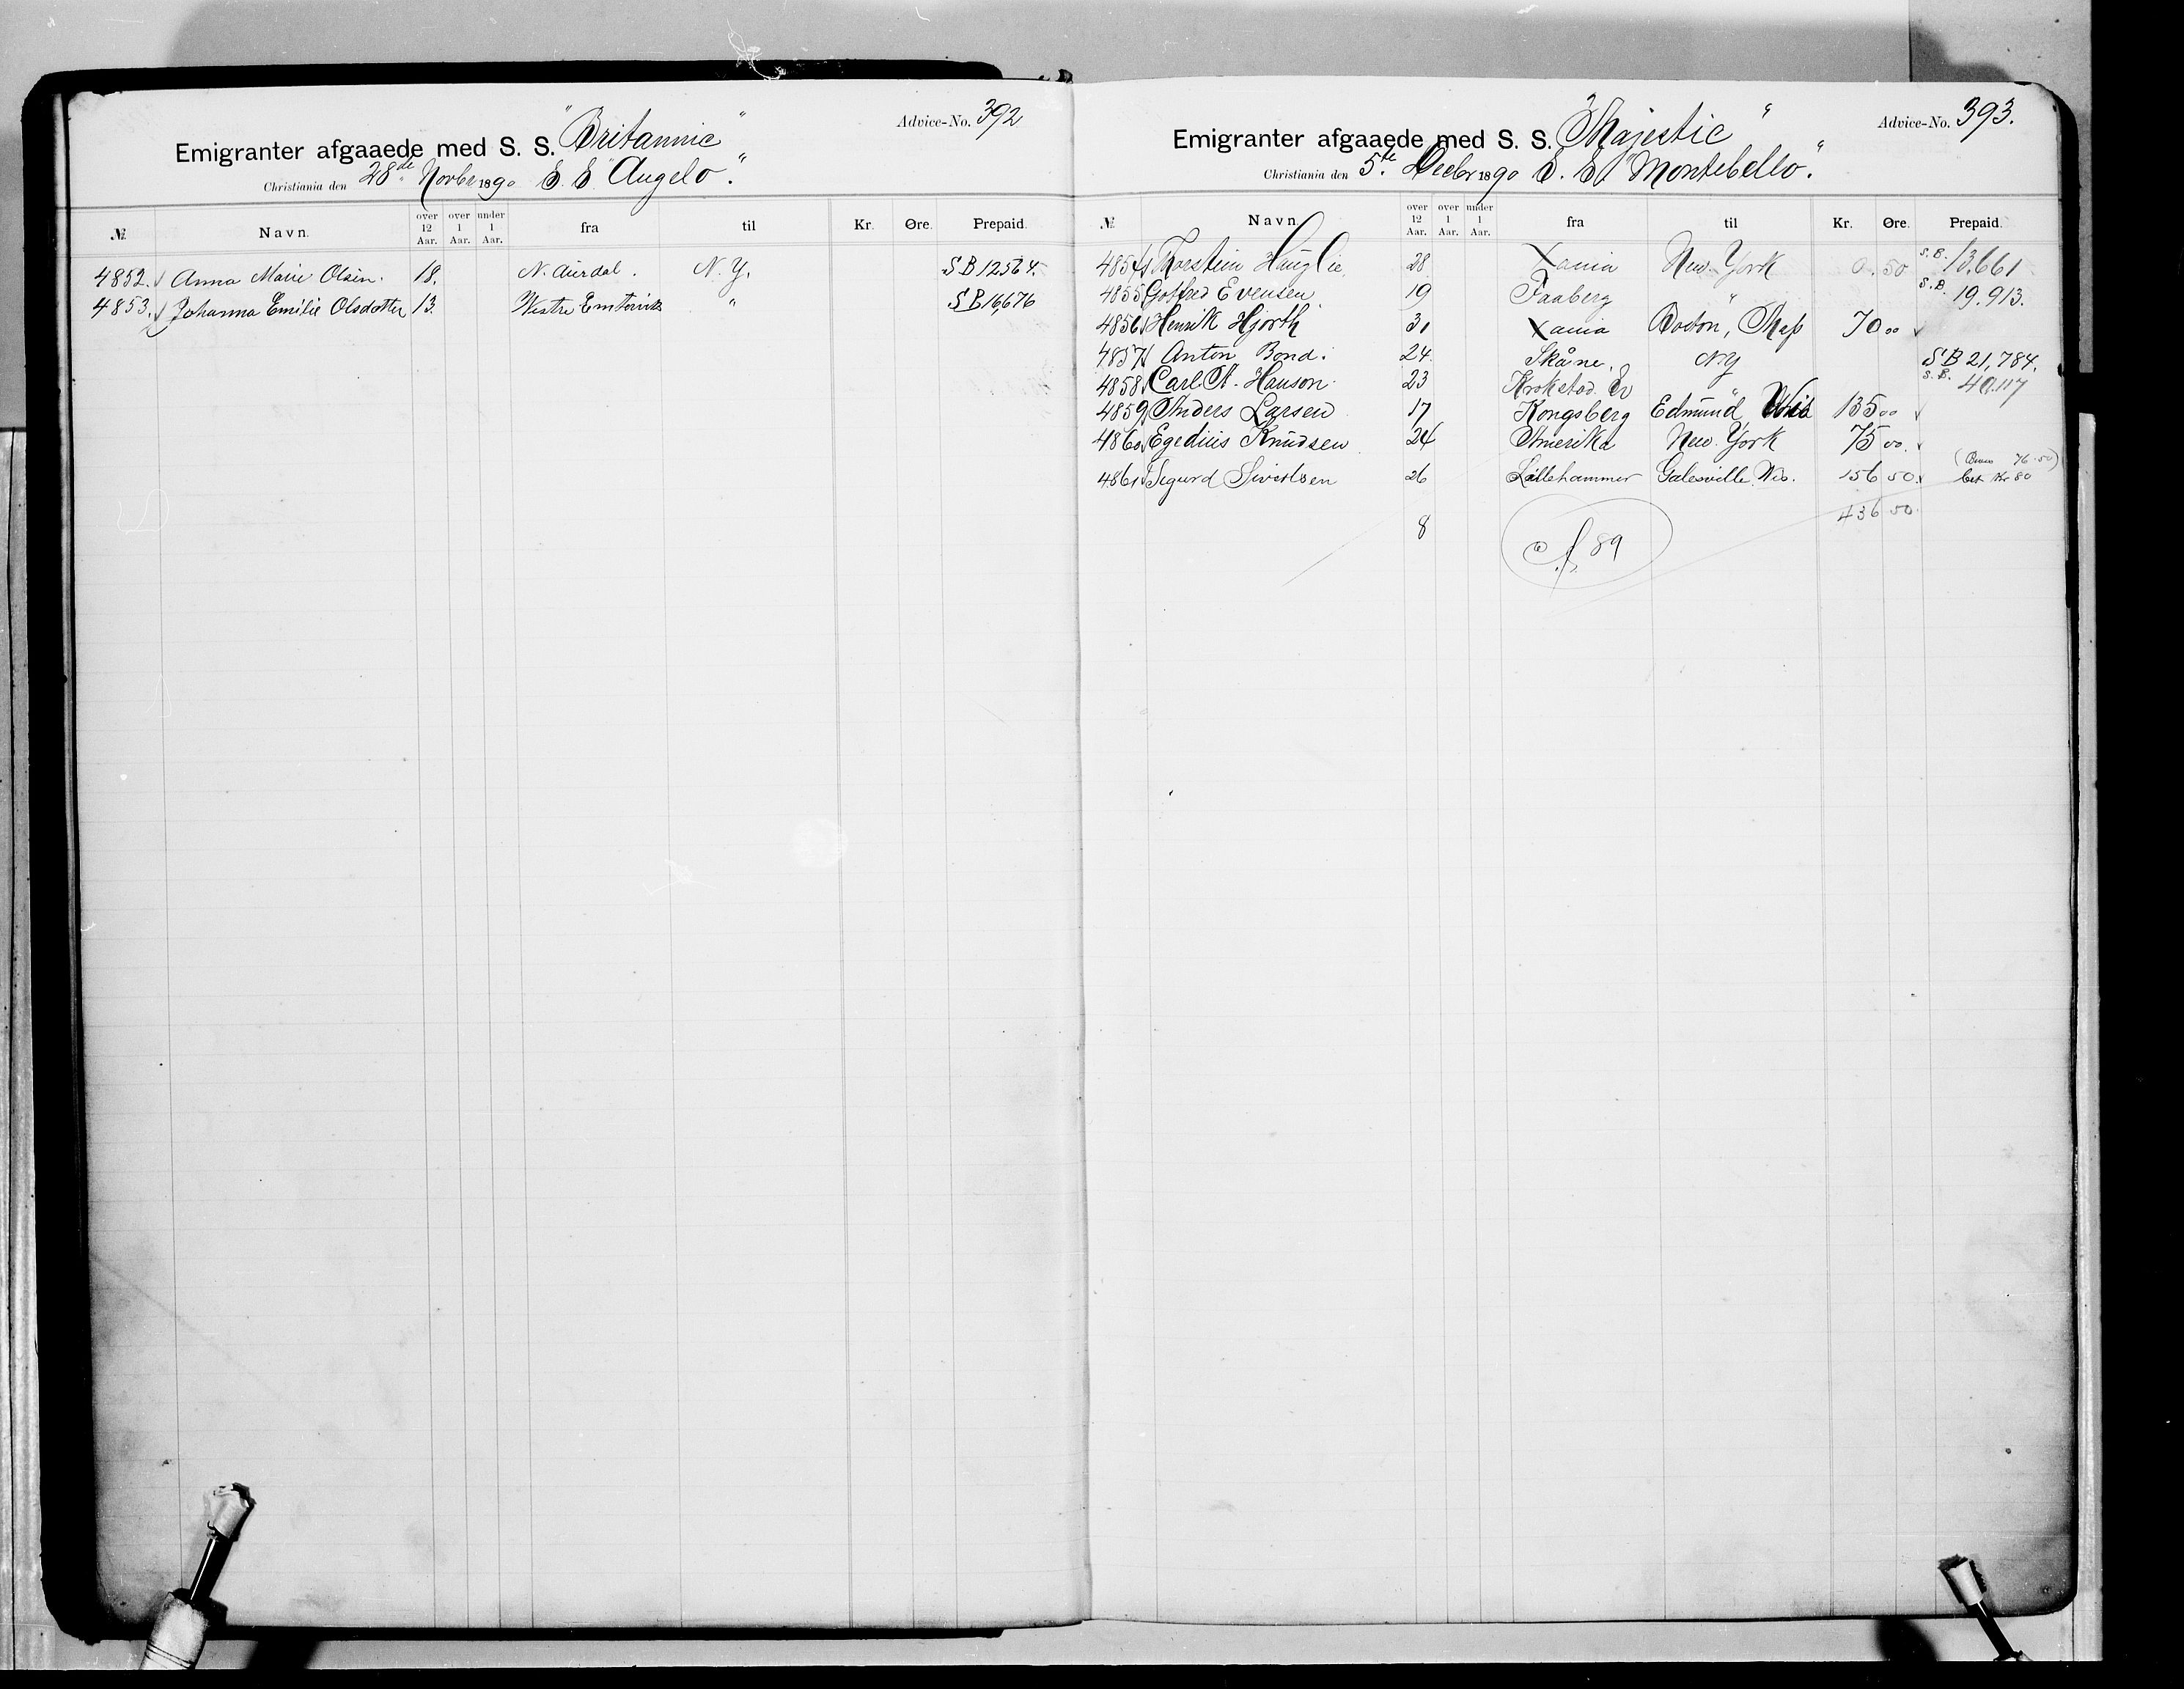 Advice-No. 392
Emigranter afgaaede med S. S. "Britannic"
Christiania den 28de Novbr 1890 S. S. "Angelo".
№ Navn. over 12 Aar. over 1 Aar. under 1 Aar. fra til Kr. Øre. Prepaid.
4852. Anna Marie Olsen. 18. N. Aurdal. N. Y. S B 12564.
4853. Johanna Emilie Olsdotter 13. Westre Emtervik " S B 16,676
Advice-No. 393.
Emigranter afgaaede med S. S. "Majestic"
Christiania den 5te Decbr 1890 S. S. "Montebello".
№ Navn over 12 Aar. over 1 Aar. under 1 Aar. fra til Kr. Øre. Prepaid.
4854 Thorstein Hauglie 28 Xania New York 0.50 S.B. 13,661
4855 Gotfred Evensen 19 Faaberg " S.B. 19.913.
4856 Henrik Hjorth 31 Xania Boston, Mass 70 00
4857 Anton Bond. 24 Skåne. NY S B 21,784.
4858 Carl A. Hanson 23 Krokstad Sv " S.B. 40.117
4859 Anders Larsen 17 Kongsberg Edmund Wis 135 00
4860 Egedius Knudsen 24 Amerika New York 75 00.
4861 Sigurd Sivertsen 26 Lillehammer Galesville Wis. 156 50. ( 76.50) bet Kr 80
8 436 50.
89